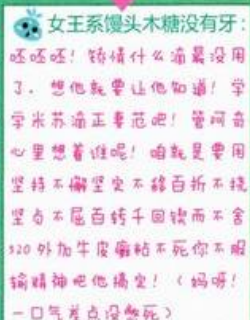 女王系馒头木糖没有牙:
呸呸呸!矫情什么滴最没用
了.想他就要让他知道!学
学米苏滴正妻范吧!管阿奇
心里想着谁呢!咱就是要用
坚持不懈坚定不移百折不挠
坚贞不屈百转千回锲而不舍
520外加牛皮癣粘不死你不服
输精神吧他搞定!(妈呀!
一口气差点没憋死)